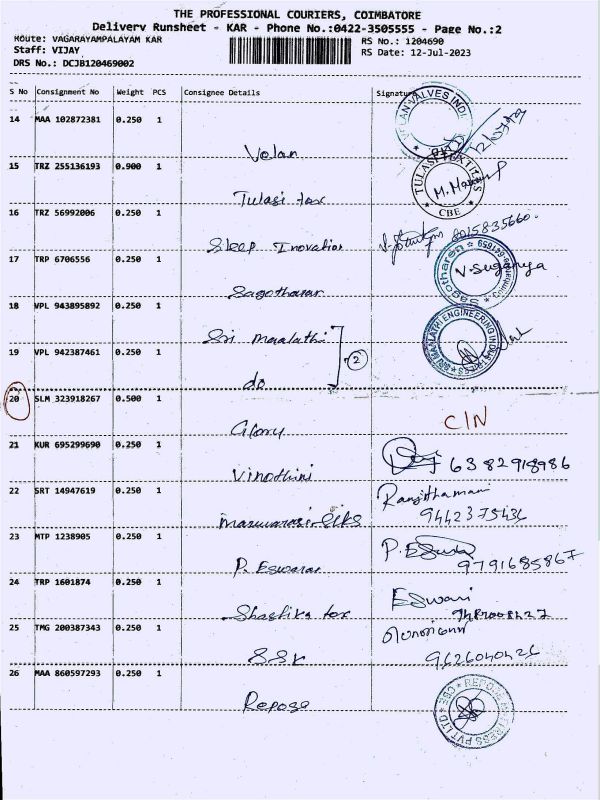 THE PROFESSIONAL COURIERS, COIMBATORE
Delivery Runsheet - KAR - Phone No.:0422-3505555 - Page No.:2
Route: VAGARAYAMPALAYAM KAR
RS No.: 1204690
Staff: VIJAY
RS Date: 12-Jul-2023
DRS No.: DCJB120469002
S No Consignment No Weight PCS Consignee Details Signature
14 MAA 102872381 0.250 1
Velan
VELAN VALVES INDIA
15 TRZ 255136193 0.900 1
Tulasi tex
TULASI TEXTILES
CBE
16 TRZ 56992006 0.250 1
Sleep Inovation
8015835660.
17 TRP 6706556 0.250 1
Sagotharar
Sagotharen
V. Suganya
18 VPL 943895892 0.250 1
Sri Maalathi
SRI MAALATHI ENGINEERING INDUSTRIES
19 VPL 942387461 0.250 1
do
2
20 SLM 323918267 0.500 1
Glory
C/N
21 KUR 695299690 0.250 1
Vinothini
6382918986
22 SRT 14947619 0.250 1
Ranjithamani
9442375436
23 MTP 1238905 0.250 1
P. Eswaran
9791685867
24 TRP 1601874 0.250 1
Shastika tex
Eswari
25 TMG 200387343 0.250 1
SSK
9626040426
26 MAA 860597293 0.250 1
Repose
REPOSE MATTRESS PVT LTD
CBE